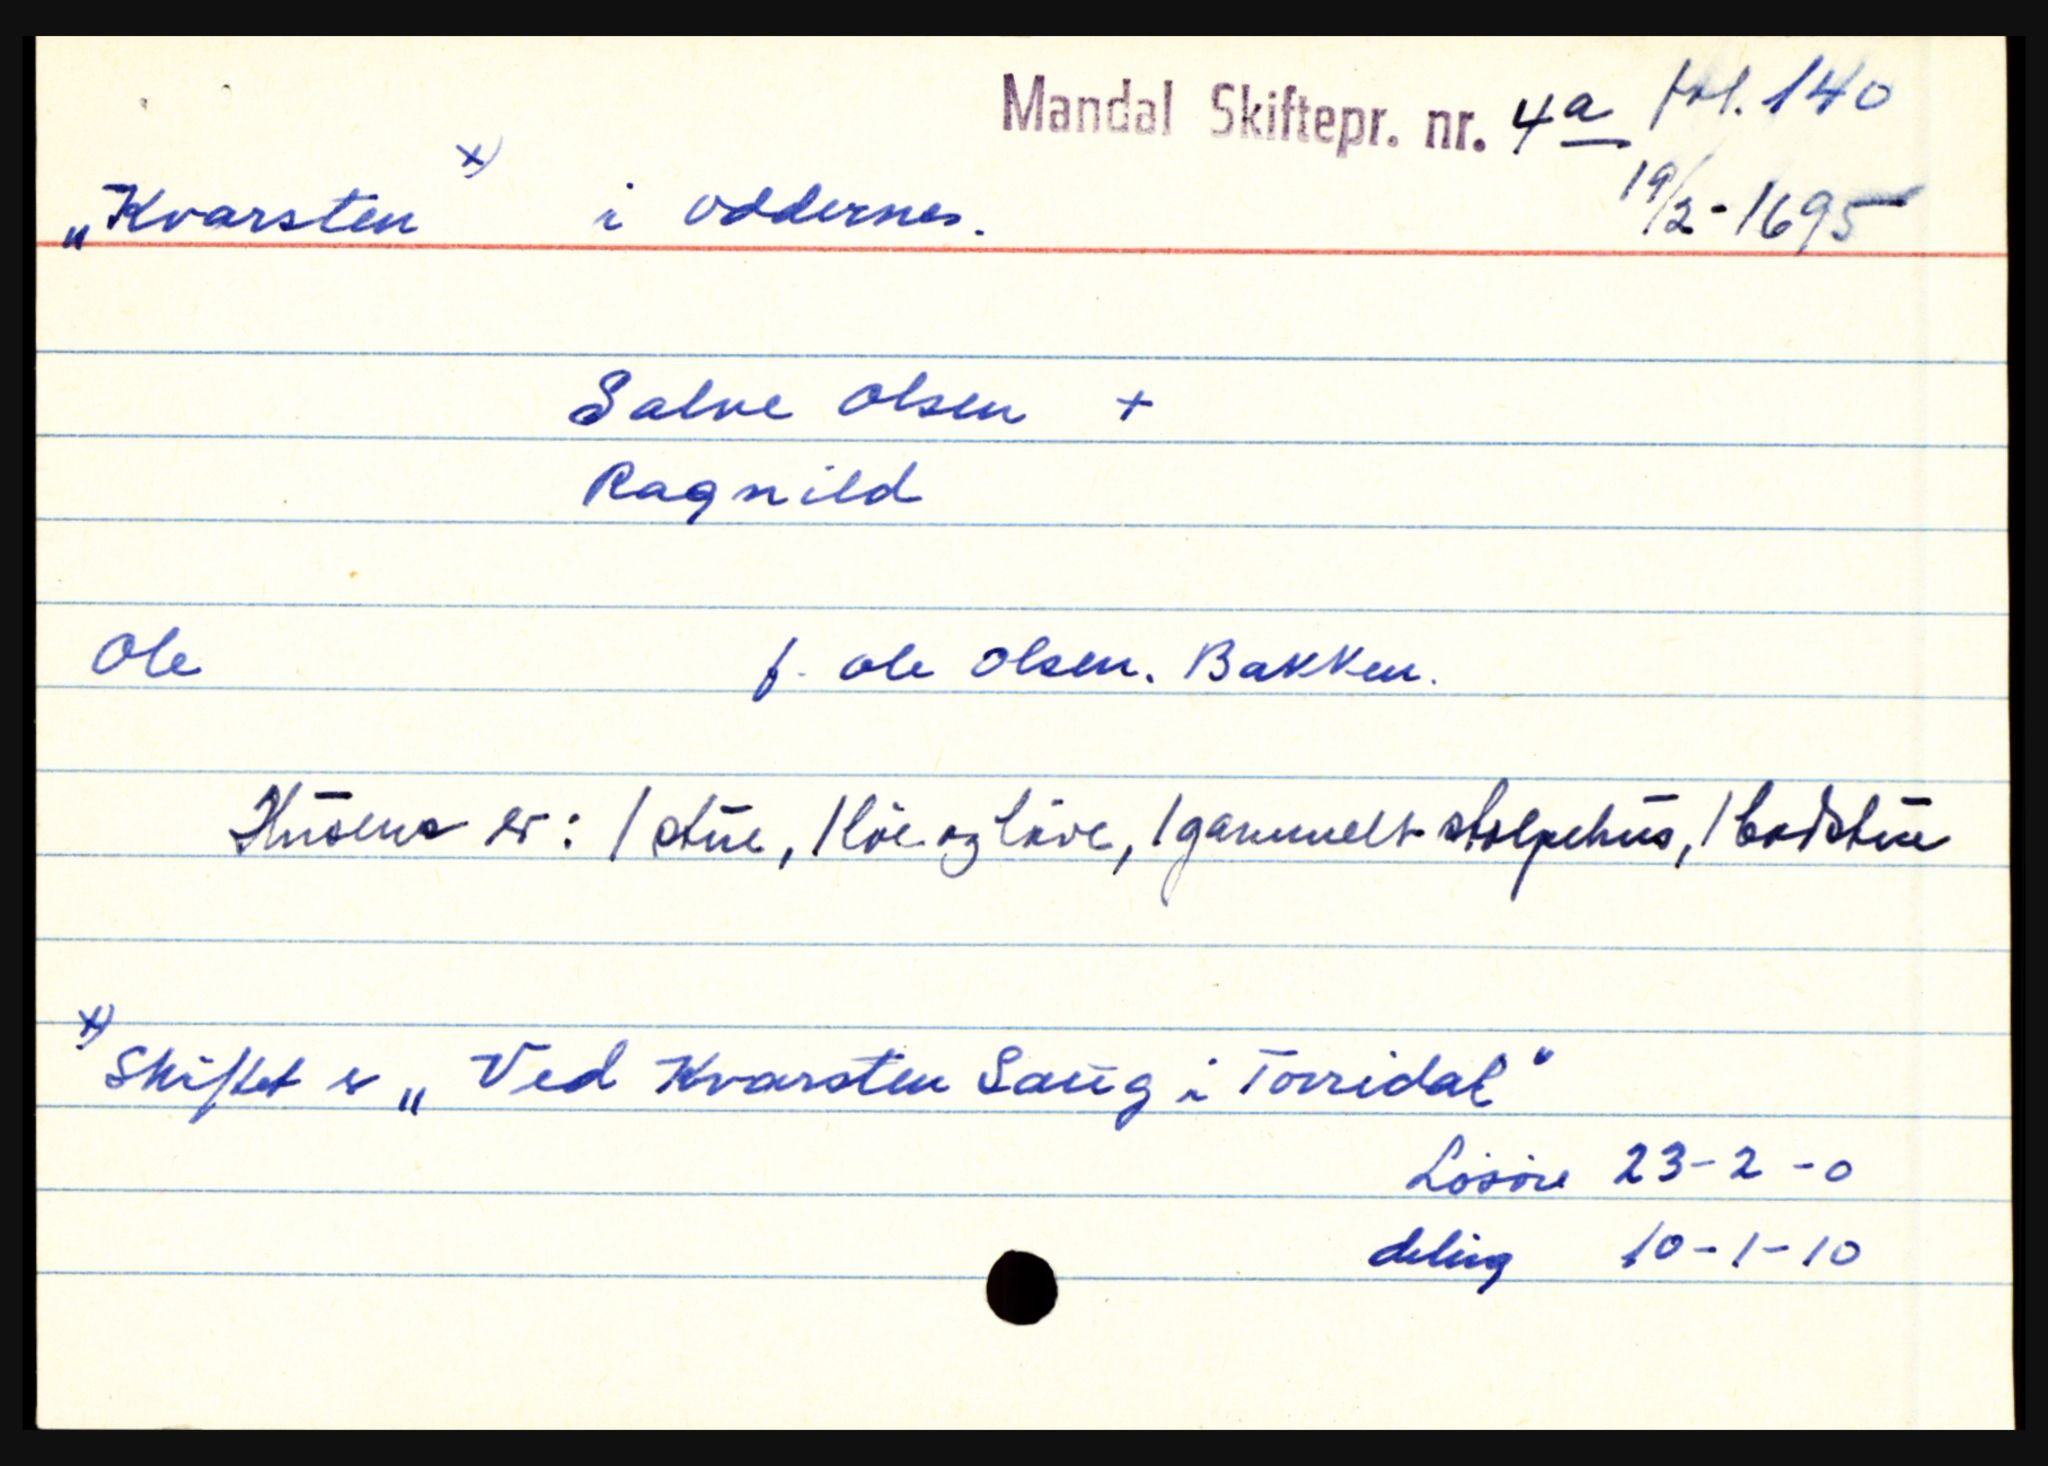 Mandal Skiftepr. nr. 4a fol. 140
19/2-1695
„Kvarsten" x) i Oddernes.
Salve Olsen +
Ragnild
Ole f. Ole Olsen. Bakken.
Husene er: 1 stue, 1 löe og låve, 1 gammelt stolpehus, 1 badstue
x) Skiftet er „Ved Kvarsten Saug i Torridal"
Lösöre 23-2-0
deling 10-1-10